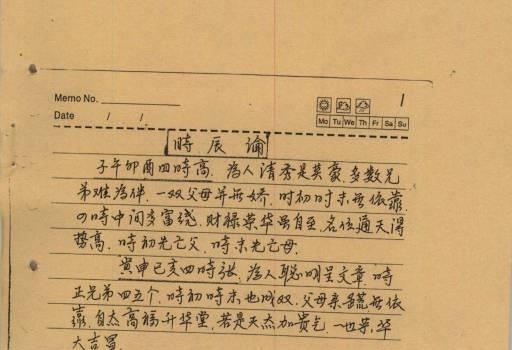 1
Memo No.
Date / /
Mo Tu We Th Fr Sa Su
時辰論
子午卯酉四時高.為人清秀是英豪.多數兄
弟难為伴.一双父母並無娇.时初时末無依靠.
の時中间多富绕.财禄荣华虽自至.名位通天得
势高.時初先亡父.時末先亡母.
寅申巳亥四時张.為人聪明呈文章.時
正兄弟四五个.時初時末也成双.父母亲無依
靠.自杰高福升华堂.若是天杰加贵气.一世荣华
大吉昌.